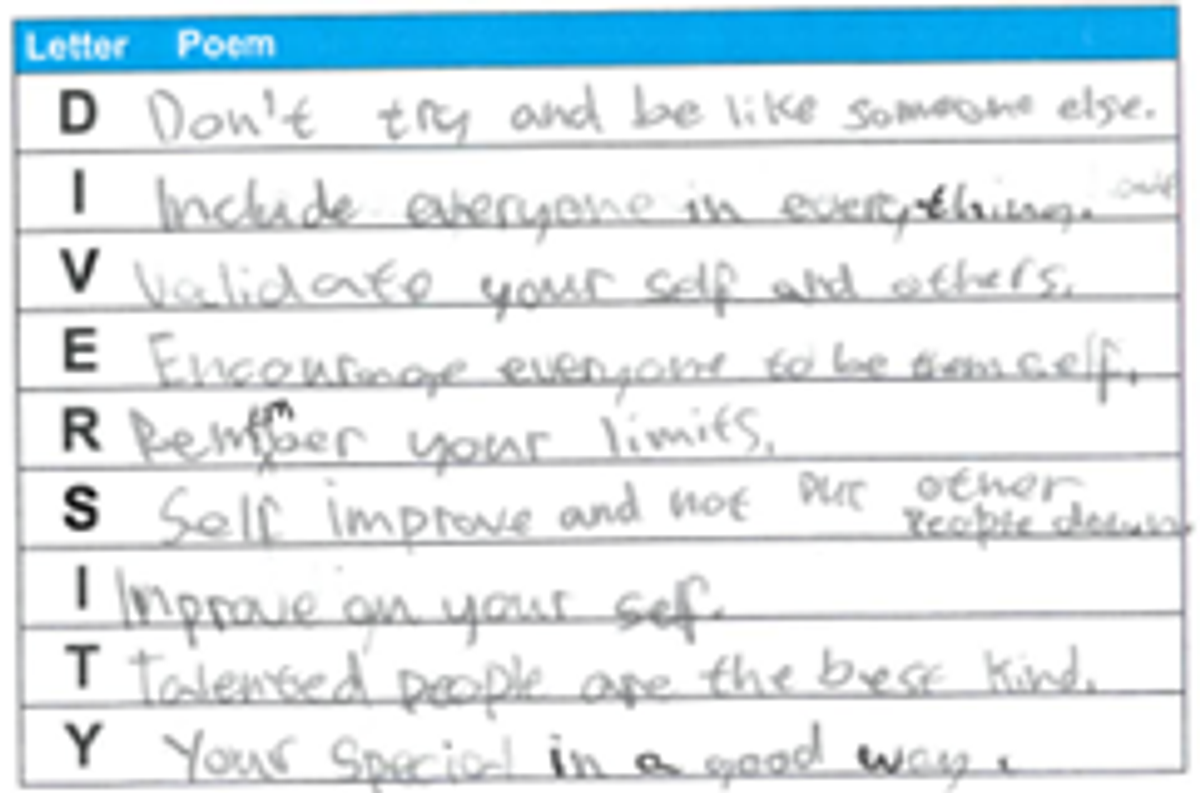 Letter Poem
D Don't try and be like someone else.
I Include everyone in everything.
V Validate your self and others.
E Encourage everyone to be themself.
R Remember your limits.
S Self improve and not put other people down.
I Improve on your self.
T Talented people are the best kind.
Y Your special in a good way.